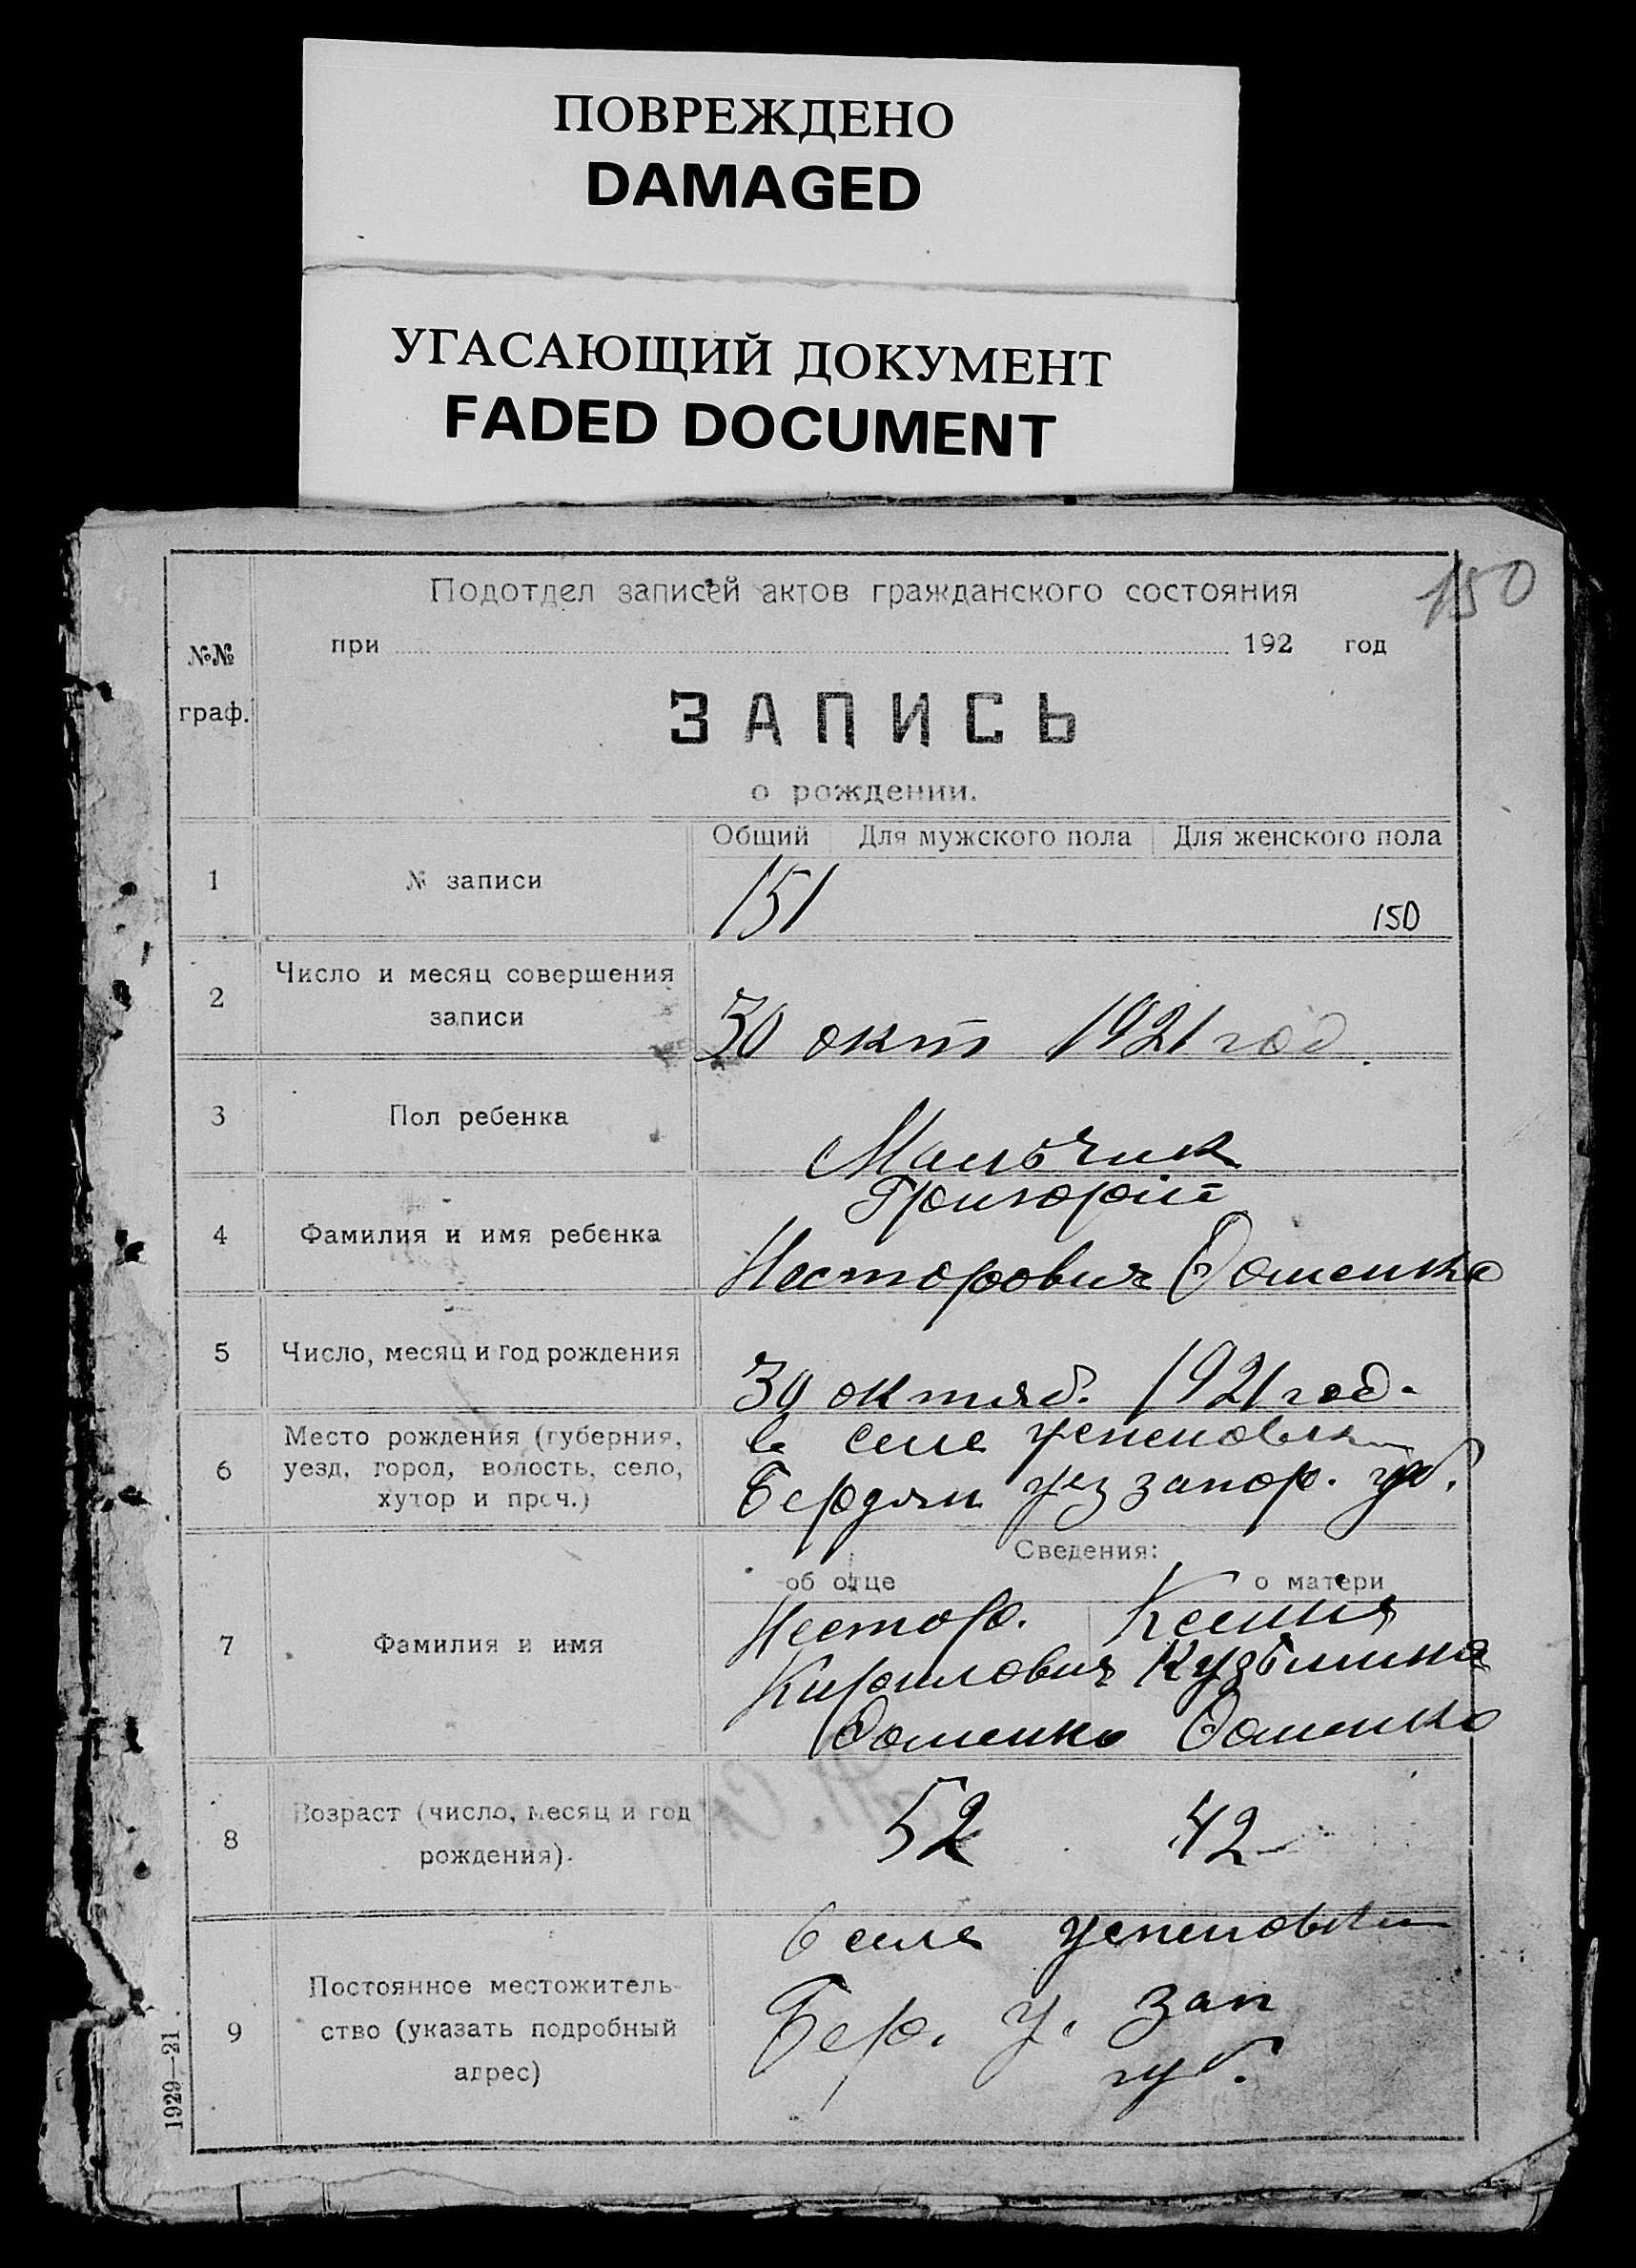 ПОВРЕЖДЕНО
DAMAGED
УГАСАЮЩИЙ ДОКУМЕНТ
FADED DOCUMENT
150
Подотдел записей актов гражданского состояния
№№
граф.
при 192 год
ЗАПИСЬ
о рождении.
Общий Для мужского пола Для женского пола
1 № записи 151 150
2 Число и месяц совершения
записи
30 окт 1921 год.
3 Пол ребенка Мальчик
4 Фамилия и имя ребенка
Григорій
Несторович Доменко
5 Число, месяц и год рождения 30 октяб. 1921 год.
6 Место рождения (губерния,
уезд, город, волость, село,
хутор и проч.)
в селе Успеновки
Бердян уез запор. губ.
Сведения:
об отце о матери
7 Фамилия и имя
Нестор. Ксения
Кирилович Кузьмина
Доменко Доменко
8 Возраст (число, месяц и год
рождения).
52 42
9 Постоянное местожитель-
ство (указать подробный
адрес)
в селе Успеновки
Бер. у. зап
губ.
1929—21